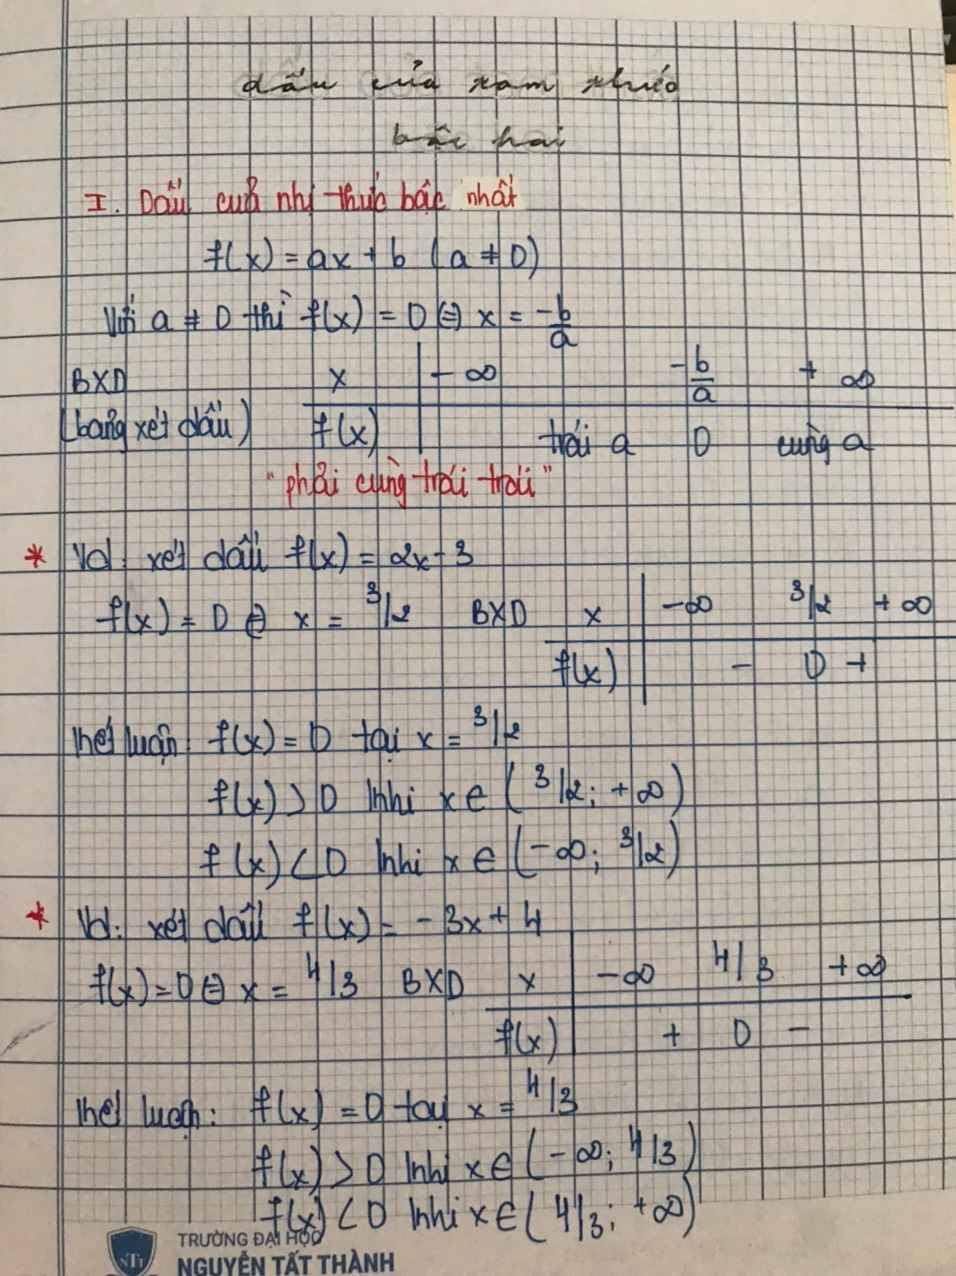 dấu của tam thức
bậc hai
I. Dấu của nhị thức bậc nhất
f(x) = ax + b (a ≠ 0)
Với a ≠ 0 thì f(x) = 0 ⇔ x = -b/a
BXD x | -∞ -b/a +∞
(bảng xét dấu) f(x) | trái a 0 cùng a
"phải cùng trái trái"
* Vd: xét dấu f(x) = 2x - 3
f(x) = 0 ⇔ x = 3/2 BXD x | -∞ 3/2 +∞
f(x) | - 0 +
Kết luận: f(x) = 0 tại x = 3/2
f(x) > 0 khi x ∈ (3/2; +∞)
f(x) < 0 khi x ∈ (-∞; 3/2)
* Vd: xét dấu f(x) = -3x + 4
f(x) = 0 ⇔ x = 4/3 BXD x | -∞ 4/3 +∞
f(x) | + 0 -
Kết luận: f(x) = 0 tại x = 4/3
f(x) > 0 khi x ∈ (-∞; 4/3)
f(x) < 0 khi x ∈ (4/3; +∞)
TRƯỜNG ĐẠI HỌC
NGUYỄN TẤT THÀNH